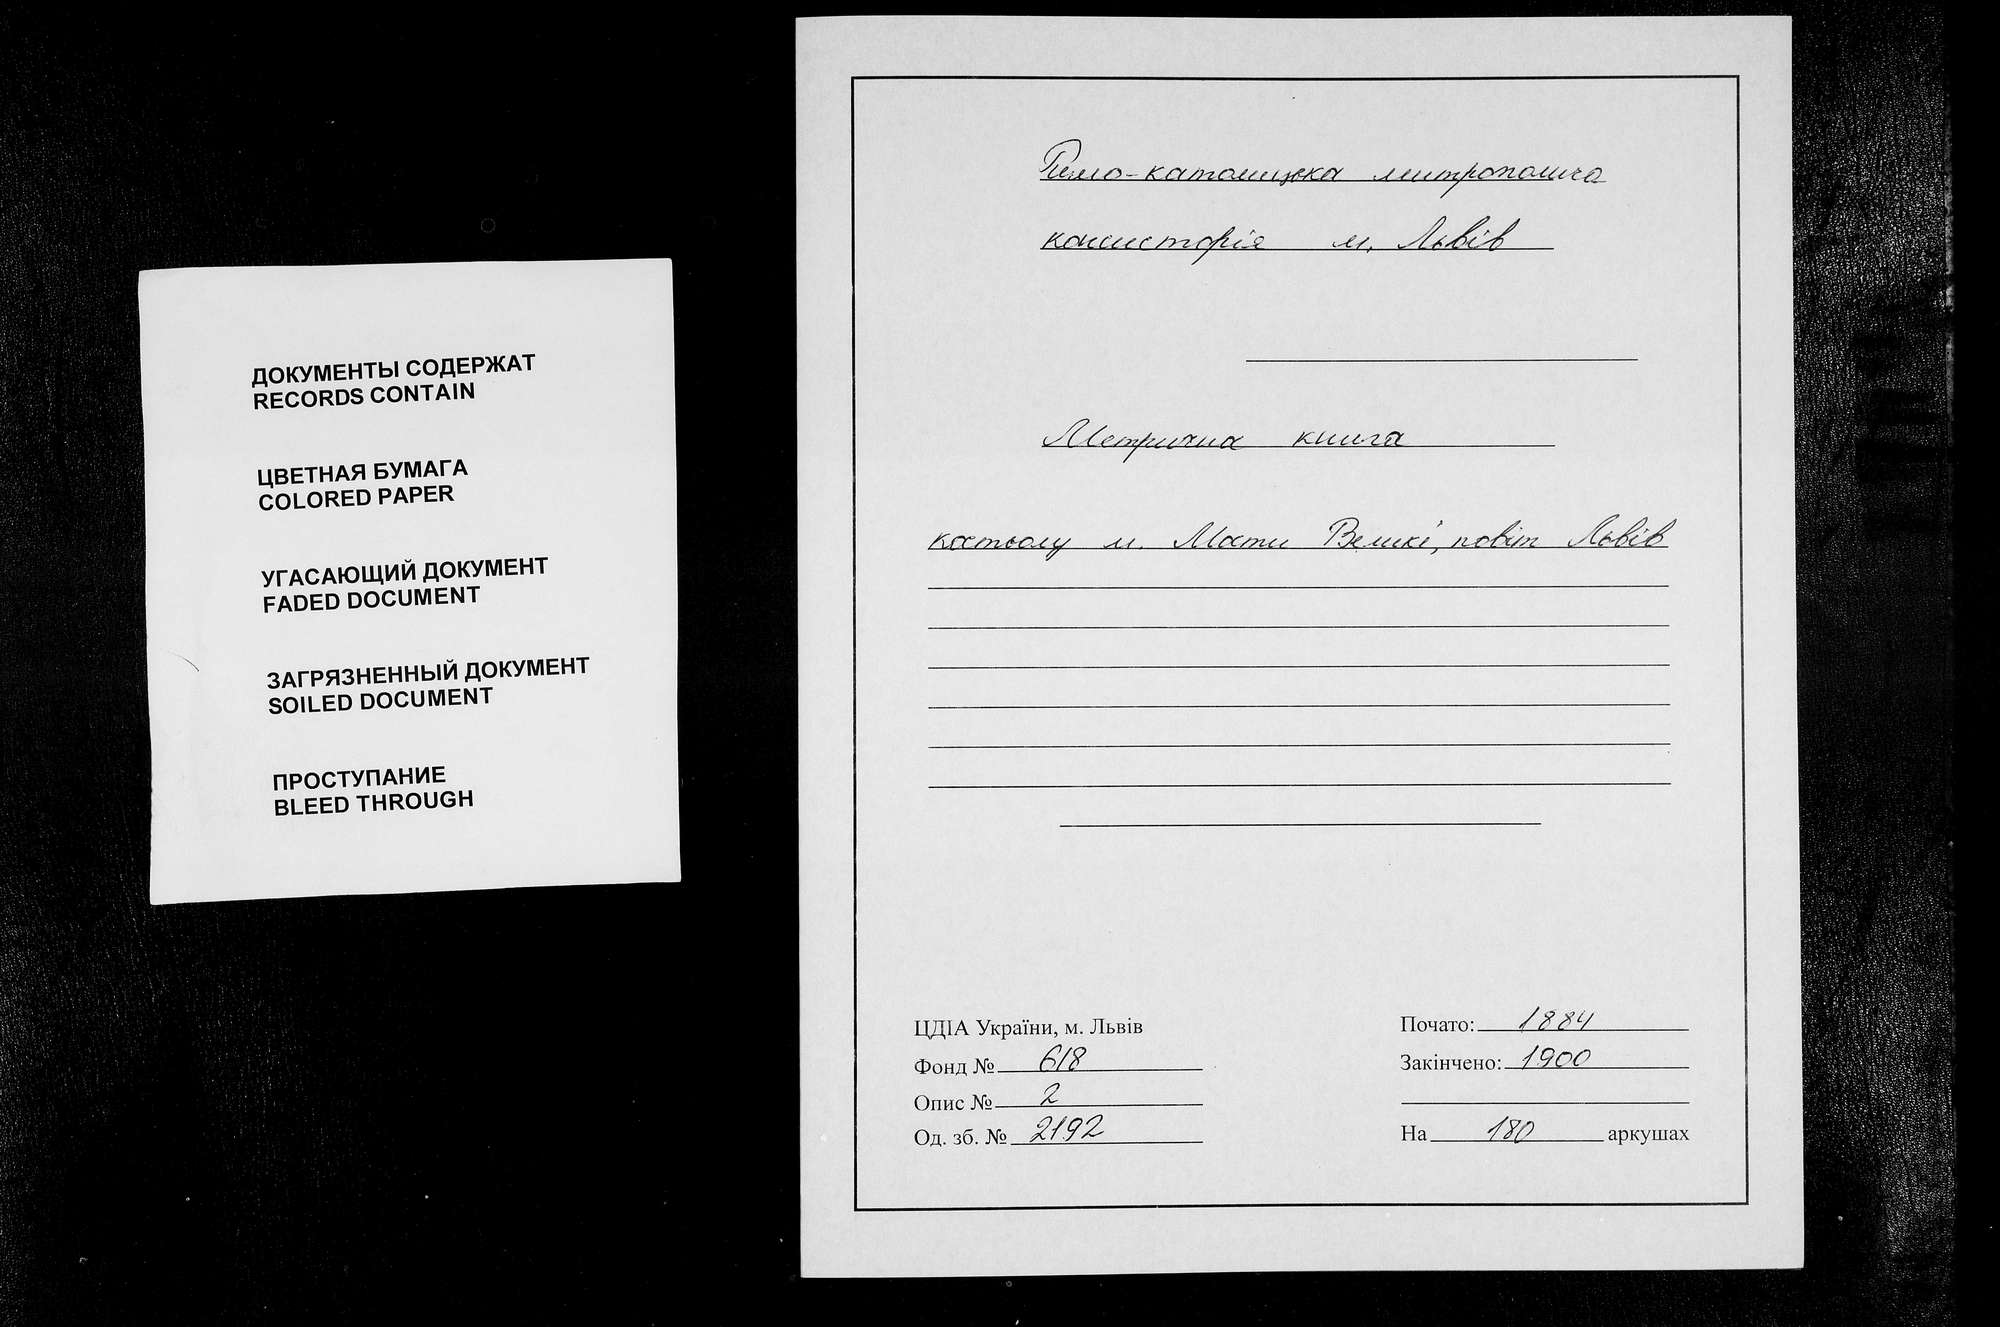 ДОКУМЕНТЫ СОДЕРЖАТ
RECORDS CONTAIN
ЦВЕТНАЯ БУМАГА
COLORED PAPER
УГАСАЮЩИЙ ДОКУМЕНТ
FADED DOCUMENT
ЗАГРЯЗНЕННЫЙ ДОКУМЕНТ
SOILED DOCUMENT
ПРОСТУПАНИЕ
BLEED THROUGH
Римо-католицька митрополича
консисторія м. Львів
Метрична книга
костьолу м. Мости Великі, повіт Львів
ЦДІА України, м. Львів
Фонд № 618
Опис № 2
Од. зб. № 2192
Почато: 1884
Закінчено: 1900
На 180 аркушах